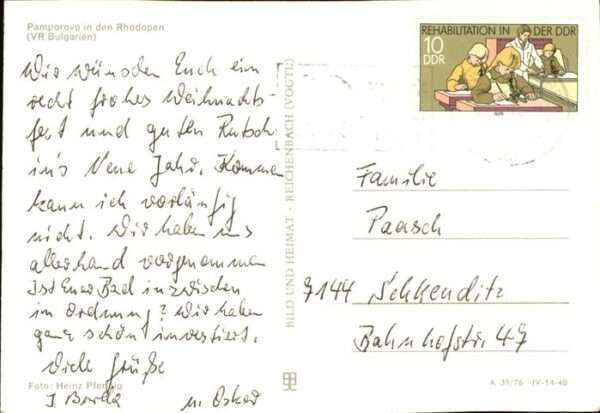 Pamporovo in den Rhodopen
(VR Bulgarien)
Wir wünschen Euch ein
recht frohes Weihnachts-
fest und guten Rutsch
ins Neue Jahr. Kommen
kann ich vorläufig
nicht. Wir haben uns
allerhand vorgenommen
Ist Euer Bad inzwischen
in Ordnung? Wir haben
ganz schön investiert.
Viele Grüße
Foto: Heinz
u. Oskar
BILD UND HEIMAT · REICHENBACH (VOGTL)
REHABILITATION IN DER DDR
10
DDR
Familie
Paasch
7144 Schkeuditz
Bahnhofstr. 47
A 31/76 · IV-14-48